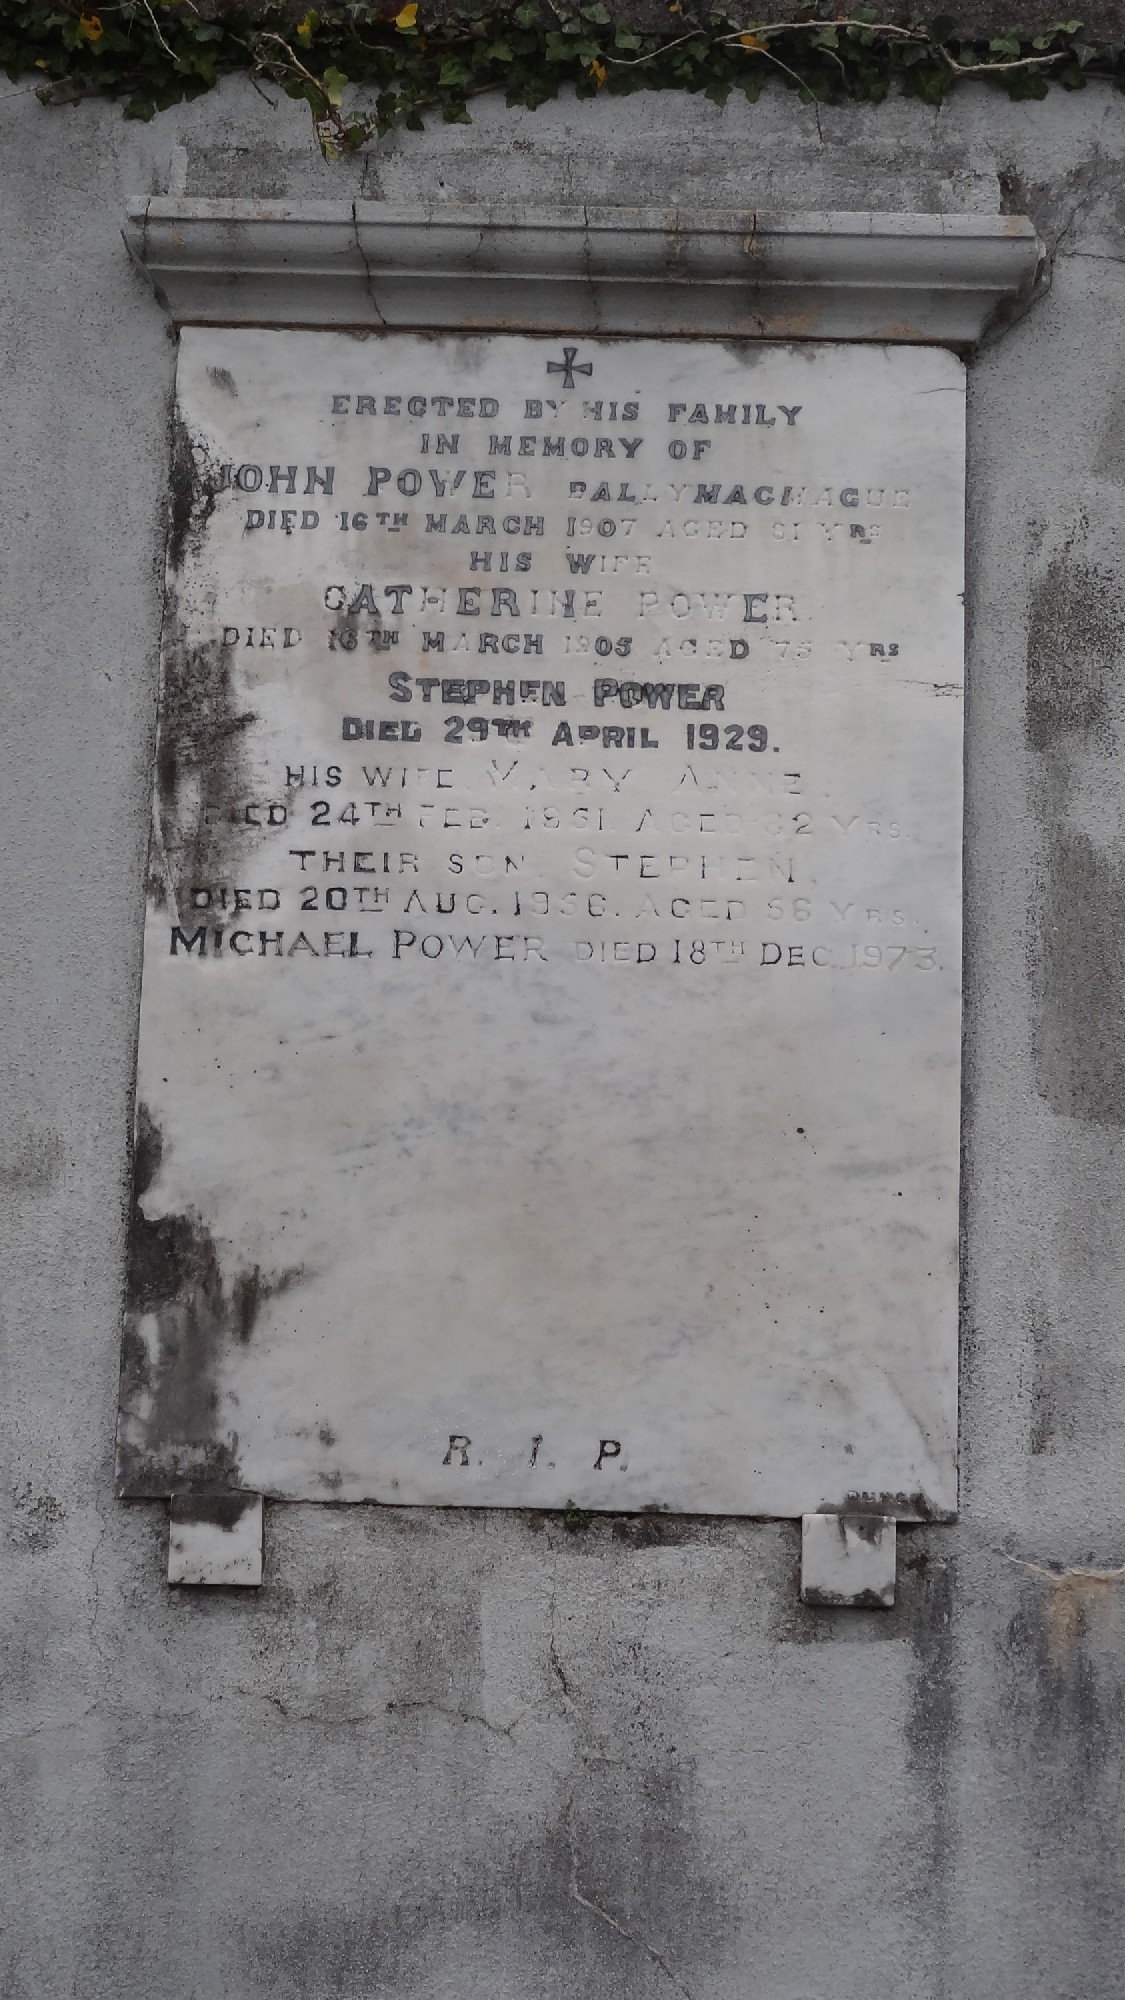 ERECTED BY HIS FAMILY
IN MEMORY OF
JOHN POWER BALLYMACMAGUE
DIED 16TH MARCH 1907 AGED 81 YRS
HIS WIFE
CATHERINE POWER
DIED 16TH MARCH 1905 AGED 75 YRS
STEPHEN POWER
DIED 29TH APRIL 1929.
HIS WIFE MARY ANNE.
DIED 24TH FEB. 1961. AGED 82 YRS.
THEIR SON STEPHEN.
DIED 20TH AUG. AGED YRS.
MICHAEL POWER DIED 18TH DEC. 1973.
R. I. P.